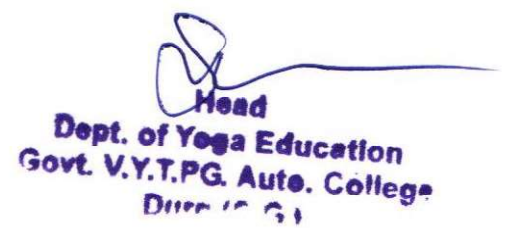 Head
Dept. of Yoga Education
Govt. V.Y.T.PG. Auto. College